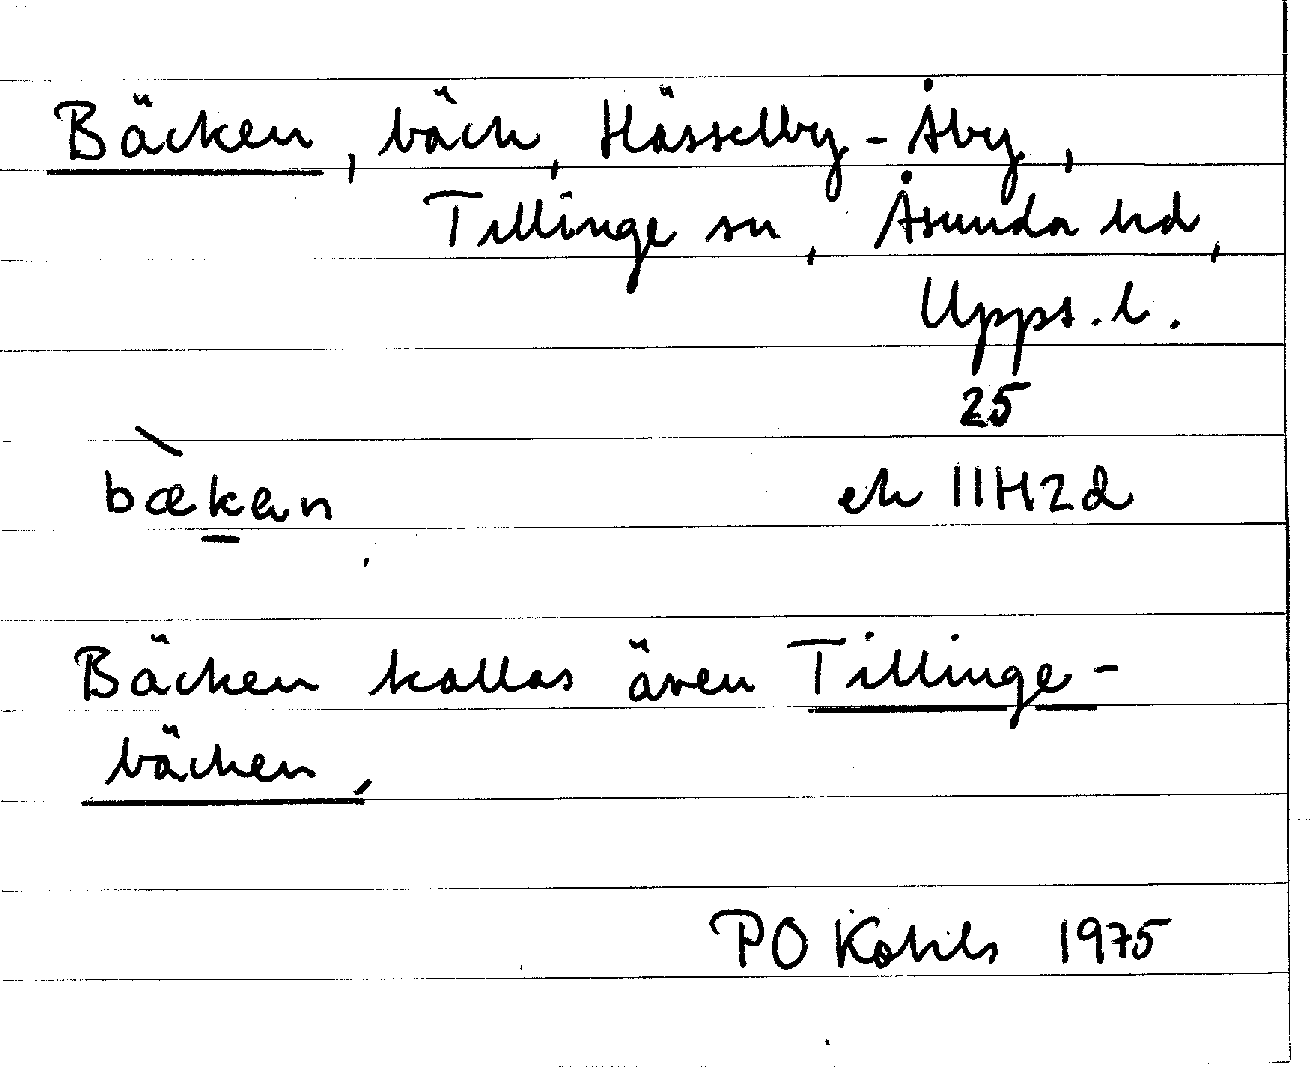 Bäcken, bäck, Hässelby-Åby,
Tillinge sn, Åsunda hd,
Upps. l.
25
bækən ek 11H2d
Bäcken kallas även Tillinge-
bäcken.
PO Kohls 1975